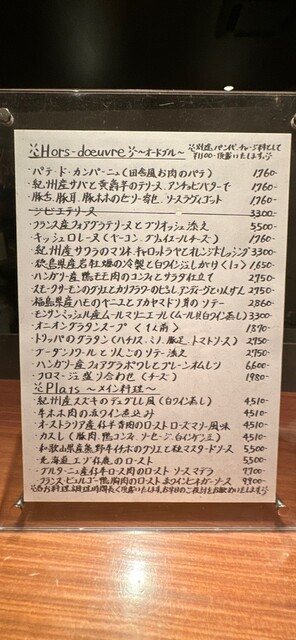 Hors-doeuvre 〜オードブル〜 ※別途、パン代、チャージ料として
¥1100-頂戴いたします。
・パテ・ド・カンパーニュ(田舎風お肉のパテ) 1760-
・紀州産サバと黄金芋のテリーヌ、アンチョビバターで 1760-
・豚舌、豚耳、豚ホホのゼリー寄せ、ソースラヴィゴット 1760-
・ジビエテリーヌ 3300-
・フランス産フォアグラテリーヌとブリオッシュ添え 5500-
・キッシュロレーヌ(ベーコン、グリュイエールチーズ) 1760-
・紀州産サワラのマリネ、キャロットラペとオレンジドレッシング 3300-
・徳島県産 の冷製と白インゲン豆 (1ヶ) 1650-
・ハンガリー産 鴨モモ肉のコンフィとサラダ仕立て 2750-
・スモークサーモンのグリエとカリフラワーのピュレ、アンディーヴといんげん 2750-
・福島県産ハモのベニエとアカヤマドリ茸のソテー 2860-
・モンサンミッシェル産ムール貝マリニエール(ムール貝白ワイン蒸し) 3300-
・オニオングラタンスープ <1人前> 1870-
・トリッパのグラタン(ハチノス、ミノ、豚足、トマトソース) 2750-
・ブーダンノワールとりんごのソテー添え 2750-
・ハンガリー産フォアグラポワレとプレーンオムレツ 6600-
・フロマージュ盛り合わせ(チーズ) 1980-
Plats 〜メイン料理〜
・紀州産スズキのデュグレレ風(白ワイン蒸し) 4510-
・牛ホホ肉の赤ワイン煮込み 4510-
・オーストラリア産仔羊背肉のロースト ローズマリー風味 4510-
・カスレ(豚肉、鴨コンフィ、ソーセージ、白インゲン豆) 4510-
・和歌山県産熊野牛イチボのグリエと粒マスタードソース 5500-
・北海道エゾ仔鹿のロースト 5500-
・ブルターニュ産仔牛ロース肉のロースト ソースマデラ 7700-
・フランス・ビュルゴー鴨胸肉のロースト 赤ワインビネガーソース 9900-
※お料理、調理時間長く頂戴いたします。お早めのご注文をお勧めいたします※